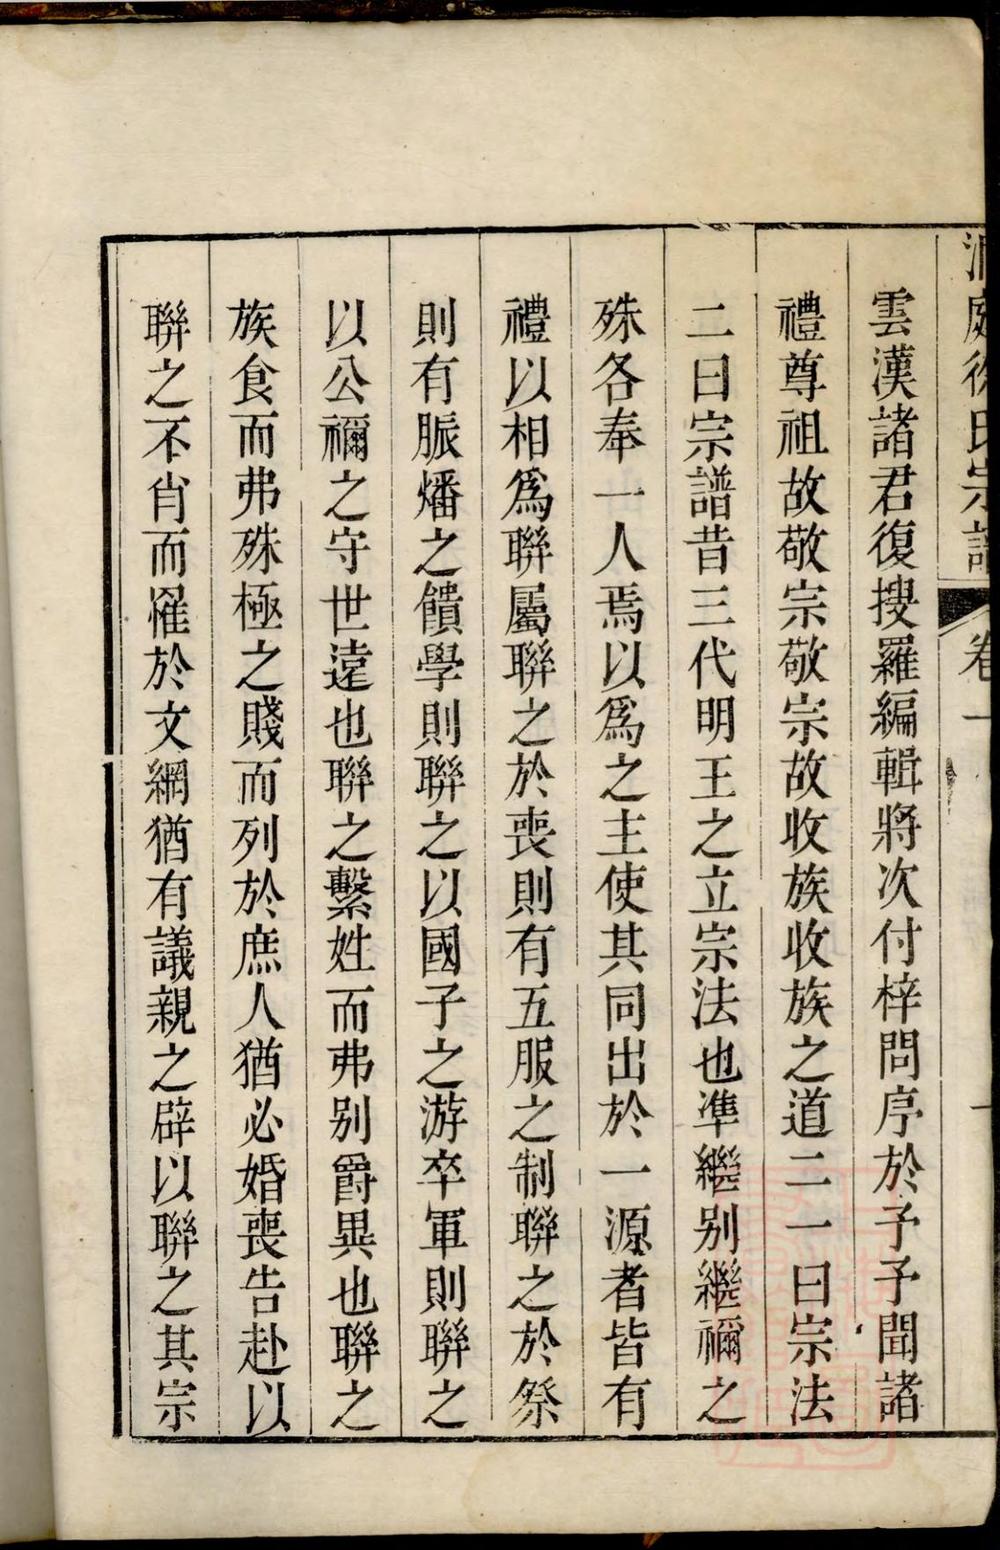 洞庭徐氏宗譜 卷一 一
雲漢諸君復搜羅編輯將次付梓問序於予予聞諸
禮尊祖故敬宗敬宗故收族收族之道二一曰宗法
二曰宗譜昔三代明王之立宗法也準繼别繼禰之
殊各奉一人焉以爲之主使其同出於一源者皆有
禮以相爲聯屬聯之於喪則有五服之制聯之於祭
則有脤燔之饋學則聯之以國子之游卒軍則聯之
以公禰之守世遠也聯之繫姓而弗别爵異也聯之
族食而弗殊極之賤而列於庶人猶必婚喪告赴以
聯之不肖而罹於文網猶有議親之辟以聯之其宗